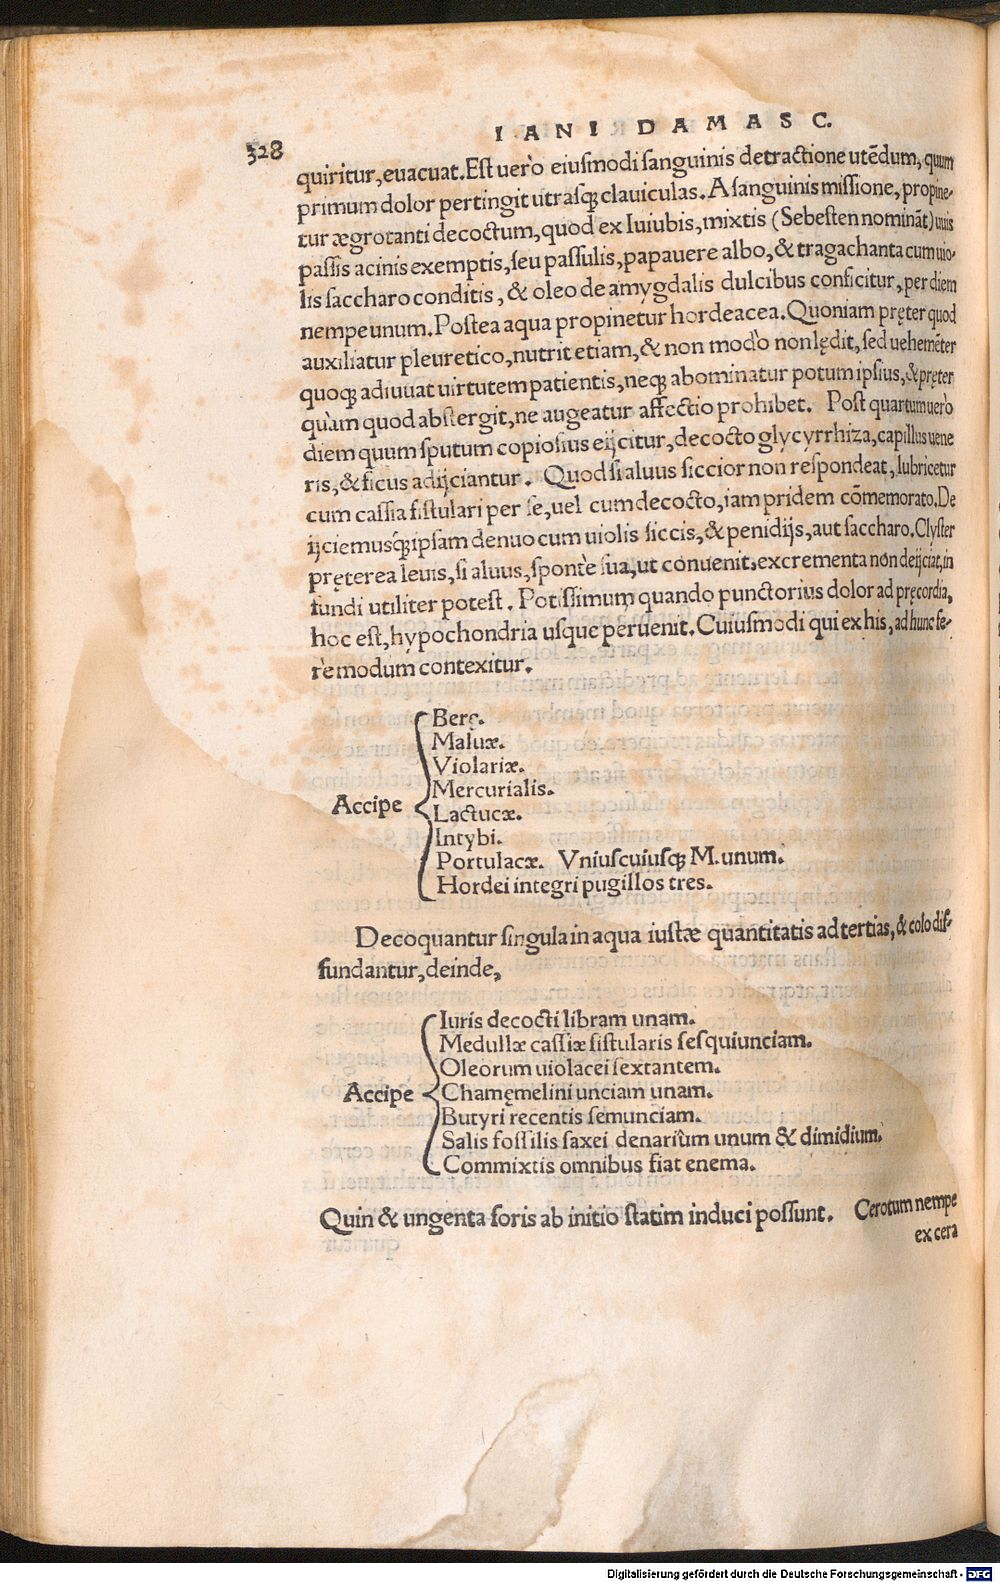 328
IANI DAMASC.
quiritur, euacuat. Est uerò eiusmodi sanguinis detractione utẽdum, quum
primum dolor pertingit utrasq; clauiculas. A sanguinis missione, propine-
tur ægrotanti decoctum, quod ex Iuiubis, mixtis (Sebesten nominãt) uuis
passis acinis exemptis, seu passulis, papauere albo, & tragachanta cum uio-
lis saccharo conditis, & oleo de amygdalis dulcibus conficitur, per diem
nempe unum. Postea aqua propinetur hordeacea. Quoniam pręter quod
auxiliatur pleuretico, nutrit etiam, & non modò non lędit, sed uehemẽter
quoq; adiuuat uirtutem patientis, neq; abominatur potum ipsius, & pręter
quàm quod abstergit, ne augeatur affectio prohibet. Post quartum uerò
diem quum sputum copiosius eijcitur, decocto glycyrrhiza, capillus uene
ris, & ficus adijciantur. Quod si aluus siccior non respondeat, lubricetur
cum cassia fistulari per se, uel cum decocto, iam pridem cõmemorato. De
ijciemusq; ipsam denuo cum uiolis siccis, & penidijs, aut saccharo. Clyster
pręterea leuis, si aluus, spontè sua, ut conuenit, excrementa non deijciat, in
fundi utiliter potest. Potissimum quando punctorius dolor ad pręcordia,
hoc est, hypochondria usque peruenit. Cuiusmodi qui ex his, ad hunc fe-
rè modum contexitur.
Accipe
Berę.
Maluæ.
Violariæ.
Mercurialis.
Lactucæ.
Intybi.
Portulacæ. Vniuscuiusq; M. unum.
Hordei integri pugillos tres.
Decoquantur singula in aqua iustæ quantitatis ad tertias, & colo dif-
fundantur, deinde,
Accipe
Iuris decocti libram unam.
Medullæ cassiæ fistularis sesquiunciam.
Oleorum uiolacei sextantem.
Chamęmelini unciam unam.
Butyri recentis semunciam.
Salis fossilis saxei denarium unum & dimidium.
Commixtis omnibus fiat enema.
Quin & ungenta foris ab initio statim induci possunt. Cerotum nempe
ex cera
Digitalisierung gefördert durch die Deutsche Forschungsgemeinschaft - DFG